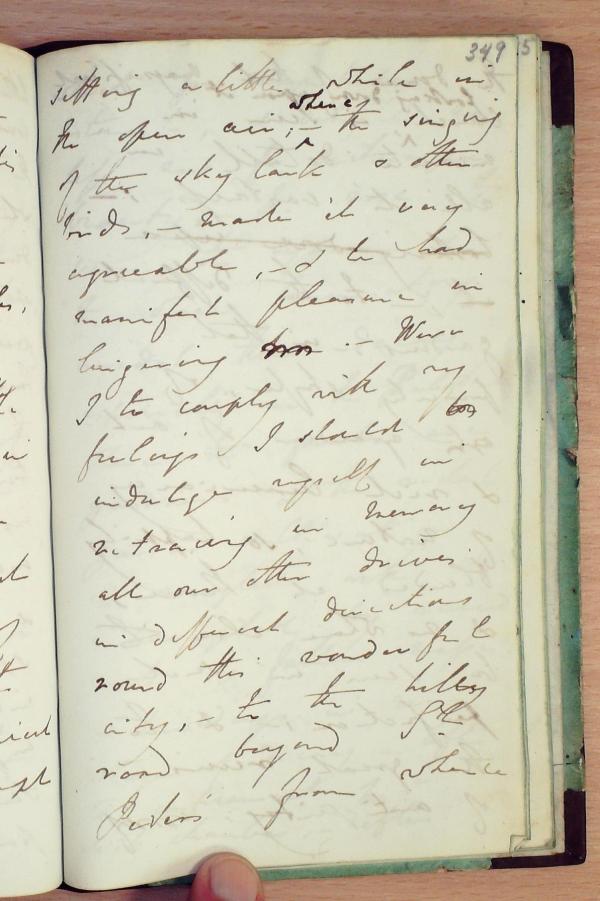 349 5
sitting a little while in
whence
the open air; – the singing
of the sky lark & other
birds, – made it very
agreeable, – & he had
manifest pleasure in
lingering . – Were
I to comply with my
feelings I should
indulge myself in
retracing in memory
all our other drives
in different directions
round this wonderful
city, – to the hilly
road beyond St.
Peters from whence